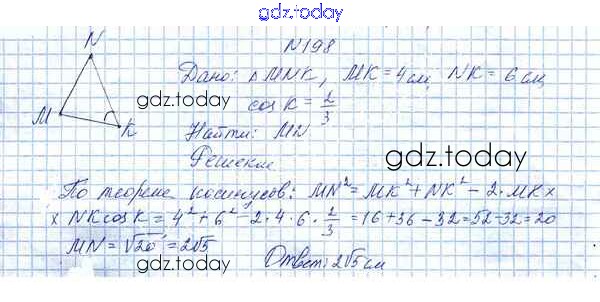 gdz.today
N198
N
Дано: △MNK, MK = 4см, NK = 6см,
gdz.today
cos K = 2/3
M
K
Найти: MN
Решение
gdz.today
По теореме косинусов: MN² = MK² + NK² - 2·MK×
× NK cos K = 4² + 6² - 2·4·6·2/3 = 16 + 36 - 32 = 52 - 32 = 20
MN = √20 = 2√5
gdz.today
Ответ: 2√5 см